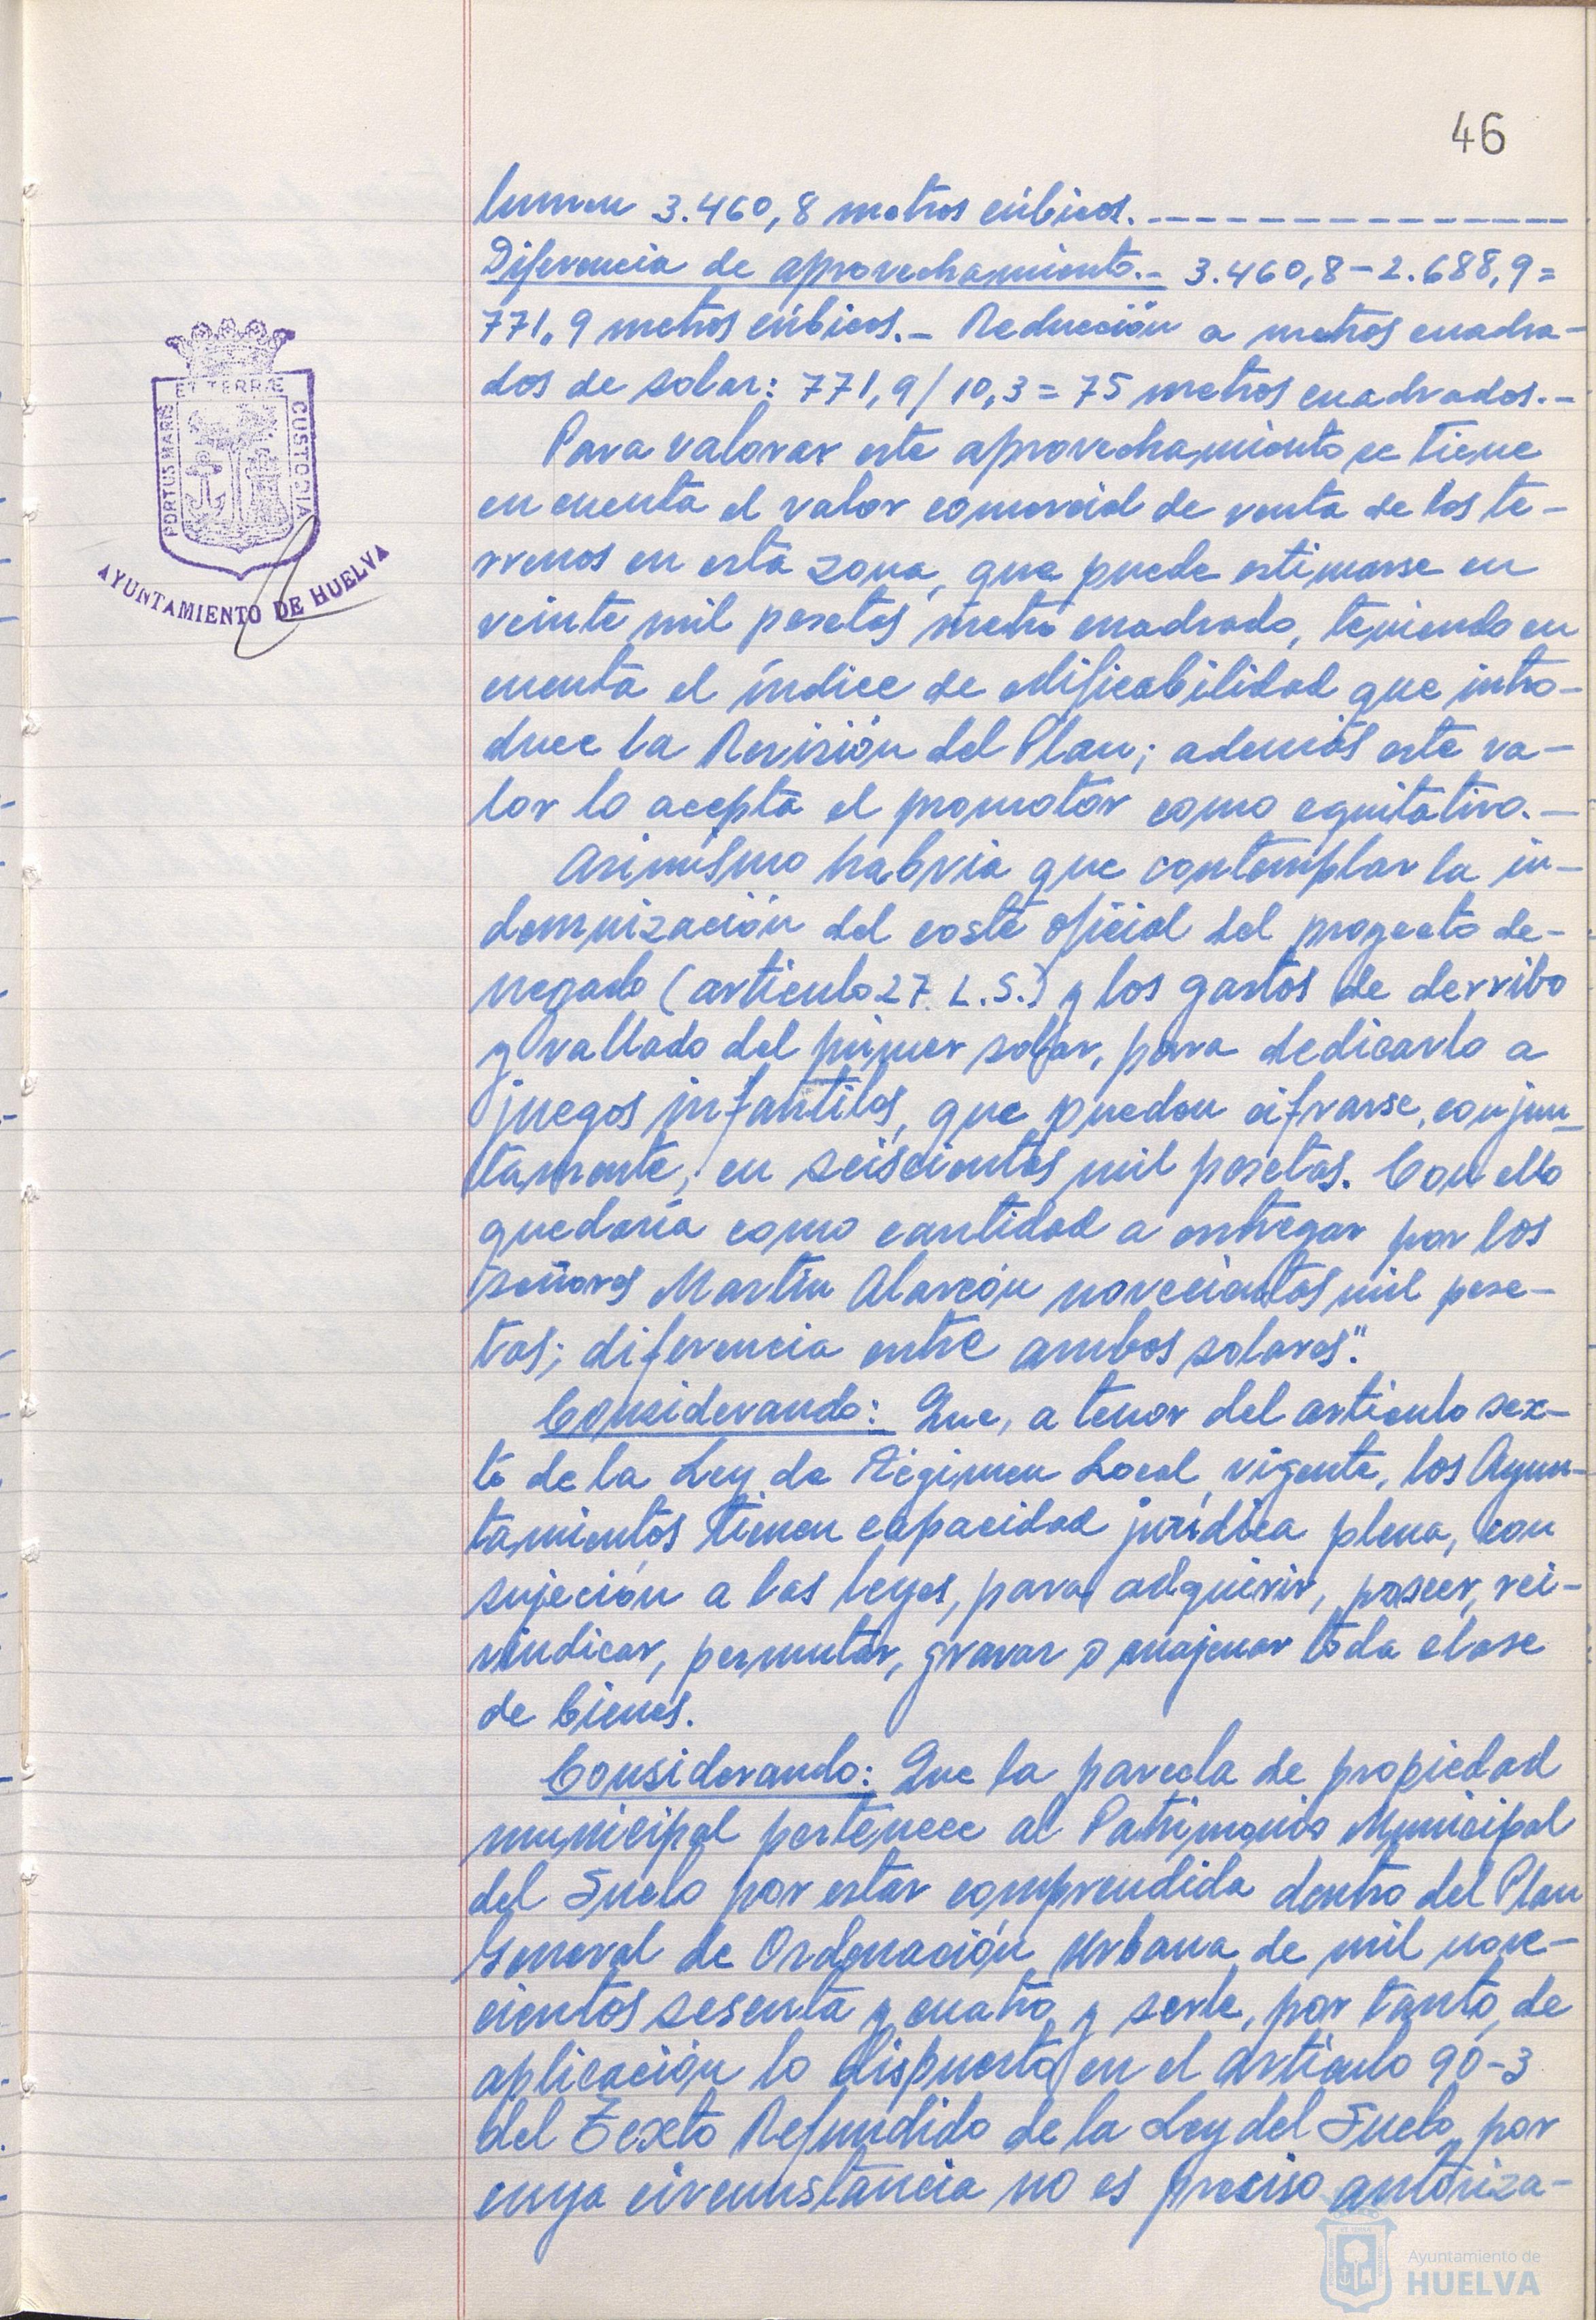 46
lumen 3.460,8 metros cúbicos.
Diferencia de aprovechamiento.- 3.460,8-2.688,9=
771,9 metros cúbicos.- Reducción a metros cuadra-
dos de solar: 771,9/10,3=75 metros cuadrados.-
Para valorar este aprovechamiento se tiene
en cuenta el valor comercial de venta de los te-
rrenos en esta zona, que puede estimarse en
veinte mil pesetas metro cuadrado, teniendo en
cuenta el índice de edificabilidad que intro-
duce la Revisión del Plan; además este va-
lor lo acepta el promotor como equitativo.-
Asimismo habria que contemplar la in-
demnización del coste oficial del proyecto de-
negado (articulo 27 L.S.) y los gastos de derribo
y vallado del primer solar, para dedicarlo a
juegos infantiles, que pueden cifrarse, conjun-
tamente, en seiscientas mil pesetas. Con ello
quedaría como cantidad a entregar por los
señores Martín Alarcón novecientas mil pese-
tas; diferencia entre ambos solares".
Considerando: Que, a tenor del articulo sex-
to de la Ley de Régimen Local vigente, los Ayun-
tamientos tienen capacidad jurídica plena, con
sujeción a las leyes, para adquirir, poseer, rei-
vindicar, permutar, gravar o enajenar toda clase
de bienes.
Considerando: Que la parcela de propiedad
municipal pertenece al Patrimonio Municipal
del Suelo por estar comprendida dentro del Plan
General de Ordenación Urbana de mil nove-
cientos sesenta y cuatro y serle, por tanto, de
aplicación lo dispuesto en el artículo 90-3
del Texto Refundido de la Ley del Suelo, por
cuya circunstancia no es preciso autoriza-
PORTUS MARIS ET TERRÆ CUSTODIA
AYUNTAMIENTO DE HUELVA
Ayuntamiento de
HUELVA